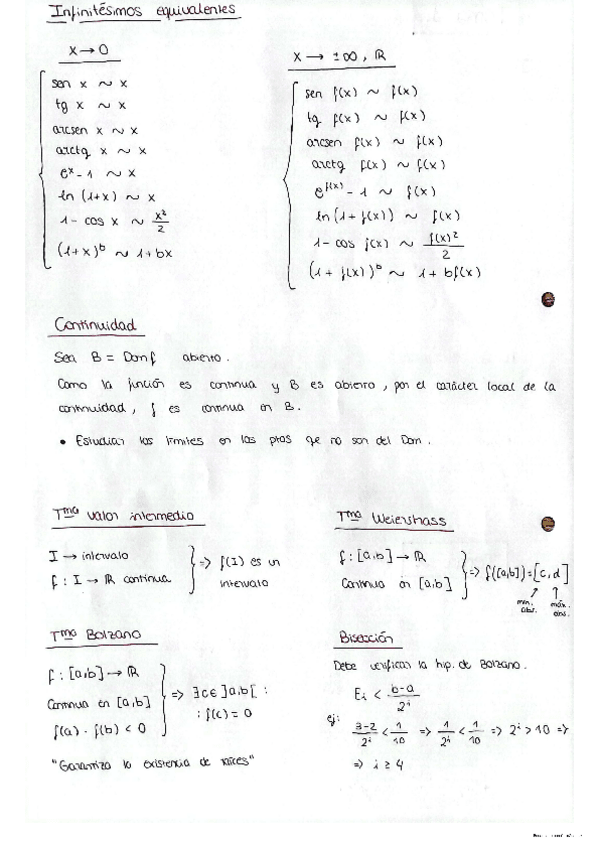 Infinitésimos equivalentes
x → 0
sen x ~ x
tg x ~ x
arcsen x ~ x
arctg x ~ x
e^x - 1 ~ x
ln (1+x) ~ x
1 - cos x ~ x²/2
(1+x)^b ~ 1+bx
x → ±∞, ℝ
sen f(x) ~ f(x)
tg f(x) ~ f(x)
arcsen f(x) ~ f(x)
arctg f(x) ~ f(x)
e^f(x) - 1 ~ f(x)
ln (1 + f(x)) ~ f(x)
1 - cos f(x) ~ f(x)²/2
(1 + f(x))^b ~ 1 + bf(x)
Continuidad
Sea B = Dom f abierto.
Como la función es continua y B es abierto, por el carácter local de la
continuidad, f es continua en B.
• Estudiar los límites en los ptos que no son del Dom.
Tma Valor intermedio
I → intervalo
f : I → ℝ continua
=> f(I) es un
intervalo
Tma Weierstrass
f : [a,b] → ℝ
Continua en [a,b]
=> f([a,b]) = [c,d]
mín. abs.
máx. abs.
Tma Bolzano
f : [a,b] → ℝ
Continua en [a,b]
f(a) · f(b) < 0
=> ∃ c ∈ ]a,b[ :
: f(c) = 0
"Garantiza la existencia de raíces"
Bisección
Debe verificar la hip. de Bolzano.
Ei < (b-a)/2^i
ej:
(3-2)/2^i < 1/10 => 1/2^i < 1/10 => 2^i > 10 =>
=> i ≥ 4